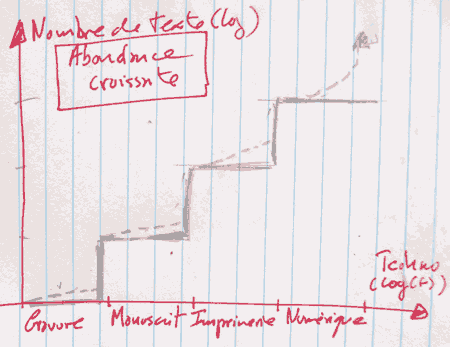 Nombre de texte (log)
Abondance
croissante
Techno
(log(t))
Gravure Manuscrit Imprimerie Numérique